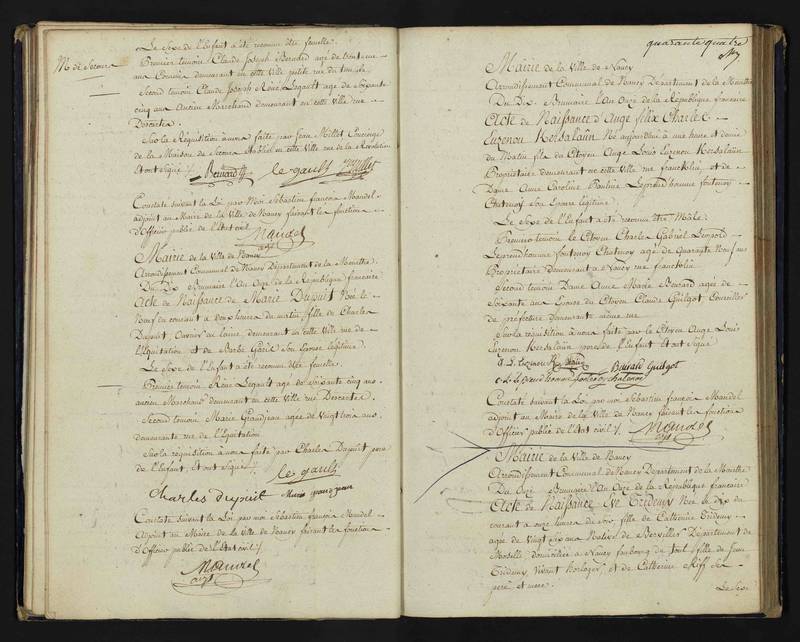 Le Sexe de l'Enfant a été reconnu être femelle.
Premier temoin Claude Joseph Bernard agé de trente un
ans demeurant en cette Ville petite rue du
Second temoin Claude Joseph René Legault agé de Soixante
cinq ans Ancien Marchand demeurant en cette Ville rue
Descartes.
Sur la Réquisition a nous faite par Jean Millet Concierge
de la Maison de Secours établie en cette Ville rue de la Revolution
Et ont signé /.
le gault Millet
M.on de Secours
Constaté suivant la Loi par Moi Sébastien françois Mandel
adjoint au Maire de la Ville de Nancy faisant les fonctions
d'Officier public de l'Etat civil
Mandel
adjt
Mairie de la Ville de Nancy
Arrondissement Communal de Nancy Département de la Meurthe
Du Dix Brumaire l'An Onze de la République francaise
Acte de Naissance de Marie Dupuit Née le
Neuf du courant a deux heures du matin, fille de Charles
Dupuit, Ouvrier en laine, demeurant en cette Ville rue de
l'Equitation et de Barbe Son Epouse légitime.
Le Sexe de l'Enfant a été reconnu être femelle.
Premier temoin Réné Legault agé de Soixante cinq ans,
ancien Marchand demeurant en cette Ville rue Descartes.
Second temoin Marie Grandjean agée de Vingt trois ans,
demeurante rue de l'Equitation
Sur la réquisition a nous faite par Charles Dupuit pere
de l'Enfant, Et ont signé /.
le gault
Charles dupuit Marie grandjean
Constaté suivant la Loi par moi Sébastien françois Mandel
Adjoint au Maire de la Ville de Nancy faisant les fonctions
d'Officier public de l'Etat civil /.
Mandel
adjt
quarante quatre
Mairie de la Ville de Nancy
Arrondissement Communal de Nancy Département de la Meurthe
Du Dix Brumaire l'An Onze de la République francaise
Acte de Naissance d'Ange félix Charles
Euzenou Kersalaün Né aujourd'hui a une heure et demie
du Matin fils du Citoyen Ange Louis Euzenou Kersalaün
Propriétaire demeurant en cette Ville rue franklin, et de
Dame Anne Caroline Pauline Leprudhomme fontenoy
Chatenoy Son Epouse légitime.
Le Sexe de l'Enfant a été reconnu être Mâle.
Premier temoin le Citoyen Charles Gabriel
Leprudhomme fontenoy Chatenoy agé de Quarante Neuf ans
Propriétaire demeurant a Nancy rue franklin
Second temoin Dame Anne Marie Beurard agée de
Soixante ans Epouse du Citoyen Claude Guilgot Conseiller
de préfecture demeurante même rue
Sur la réquisition a nous faite par le Citoyen Ange Louis
Euzenou Kersalaün pere de l'Enfant Et ont signé
Beurard Guilgot
Constaté suivant la Loi par moi Sébastien françois Mandel
adjoint au Maire de la Ville de Nancy faisant les fonctions
d'Officier public de l'Etat civil /.
Mandel
adjt
Mairie de la Ville de Nancy
Arrondissement Communal de Nancy Département de la Meurthe
Du Onze Brumaire l'An Onze de la République francaise
Acte de Naissance Eve Trideuny Née le Dix du
courant a onze heures du soir, fille de Catherine Trideuny
agée de Vingt six ans Native de Berviller Département de
Moselle, domiciliée a Nancy faubourg de toul, fille de Jean
Trideuny, Vivant horloger, et de Catherine Kiff ses
pere et mere.
Le Sexe